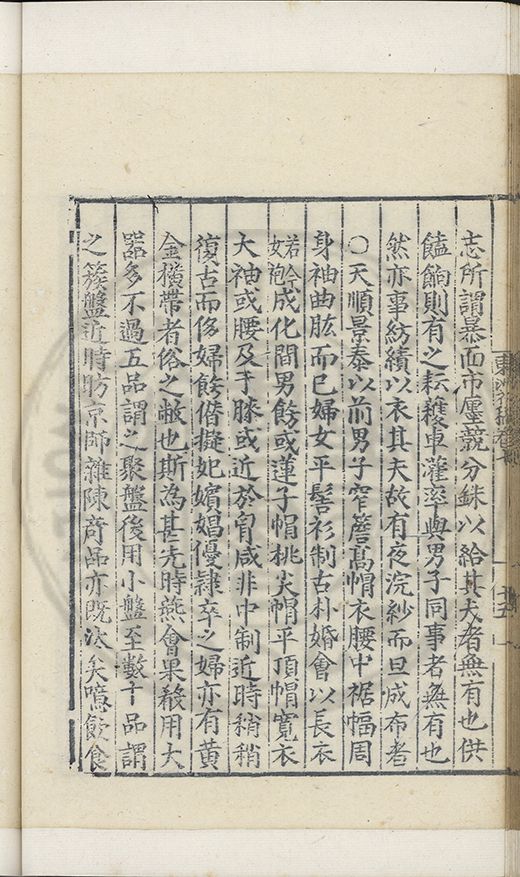 志所謂暴面市廛競分銖以給其夫者無有也供
饁餉則有之耘穫車灌率與男子同事者無有也
然亦事紡績以衣其夫故有夜浣紗而旦成布者
〇天順景泰以前男子窄簷高帽衣腰中裾幅周
身袖曲肱而已婦女平髻衫制古朴婚會以長衣
若今女袍成化間男餙或蓮子帽桃尖帽平頂帽寬衣
大袖或腰及于膝或近於胷咸非中制近時稍稍
復古而侈婦餙僭擬妃嬪娼優隷卒之婦亦有黄
金橫帶者俗之敝也斯為甚先時燕會果殽用大
器多不過五品謂之聚盤後用小盤至數十品謂
之簇盤近時昉京師雜陳奇品亦既汰矣噫飲食